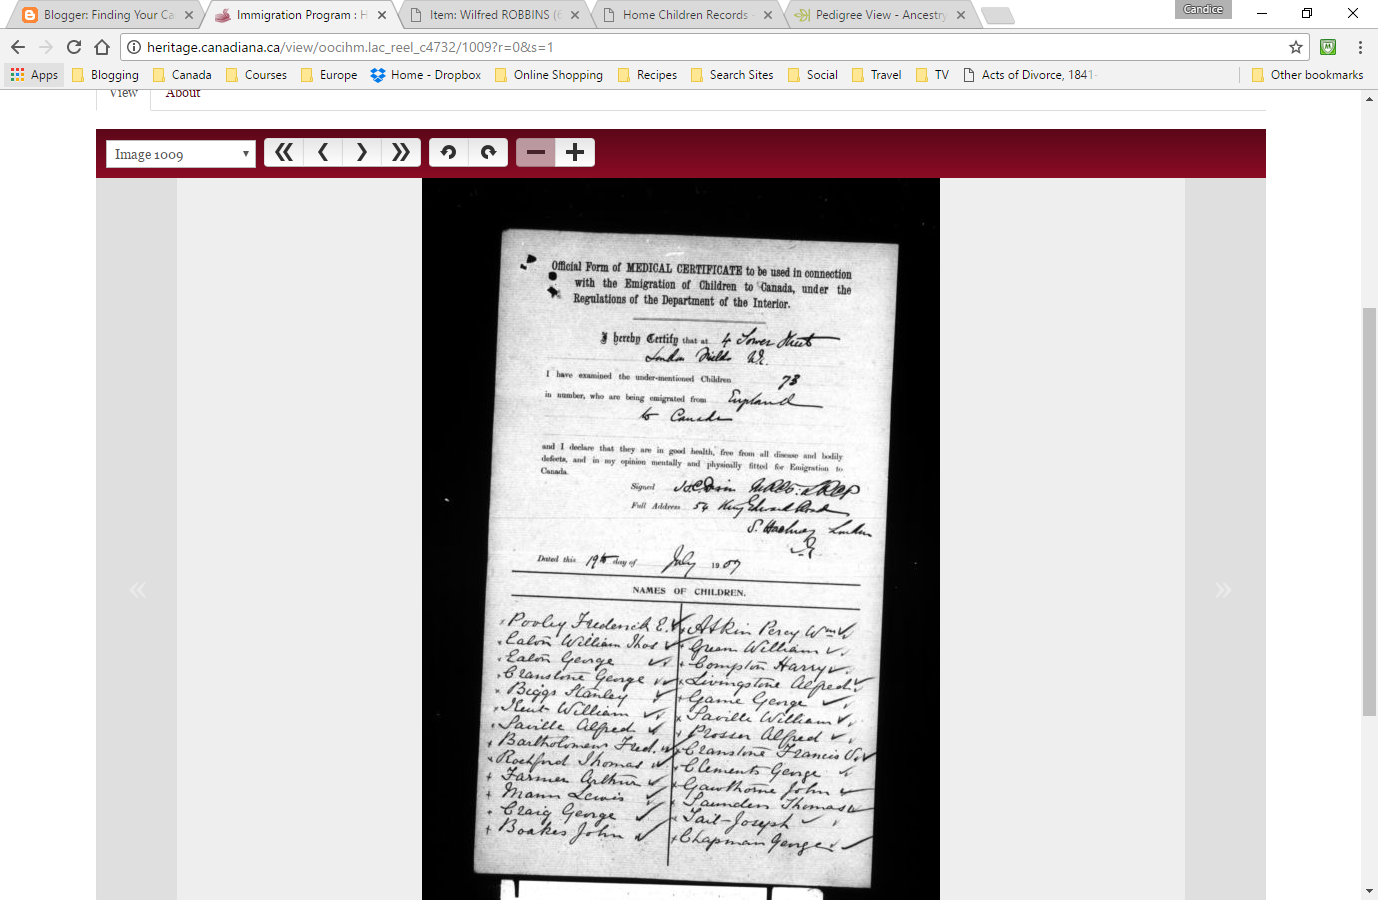 Blogger: Finding Your Ca
Immigration Program : H
Item: Wilfred ROBBINS (6
Home Children Records -
Pedigree View - Ancestry
Candice
heritage.canadiana.ca/view/oocihm.lac_reel_c4732/1009?r=0&s=1
Apps Blogging Canada Courses Europe Home - Dropbox Online Shopping Recipes Search Sites Social Travel TV Acts of Divorce, 1841- Other bookmarks
View About
Image 1009
Official Form of MEDICAL CERTIFICATE to be used in connection
with the Emigration of Children to Canada, under the
Regulations of the Department of the Interior.
I hereby Certify that at 4 Tower Street
London Fields
I have examined the under-mentioned Children 73
in number, who are being emigrated from England
to Canada
and I declare that they are in good health, free from all disease and bodily
defects, and in my opinion mentally and physically fitted for Emigration to
Canada.
Signed MRCS. LRCP
Full Address 54 King Edward Road
S. Hackney London
Dated this 19th day of July 1907
NAMES OF CHILDREN.
Pooley Frederick E. Atkin Percy Wm
Eaton William Thos Green William
Eaton George Compton Harry
Cranstone George Livingstone Alfred
Biggs Stanley Game George
Kent William Saville William
Saville Alfred Prosser Alfred
Bartholomew Fred. Cranstone Francis
Rochford Thomas Clements George
Farmer Arthur Gawthorne John
Mann Lewis Saunders Thomas
Craig George Tait Joseph
Boakes John Chapman George